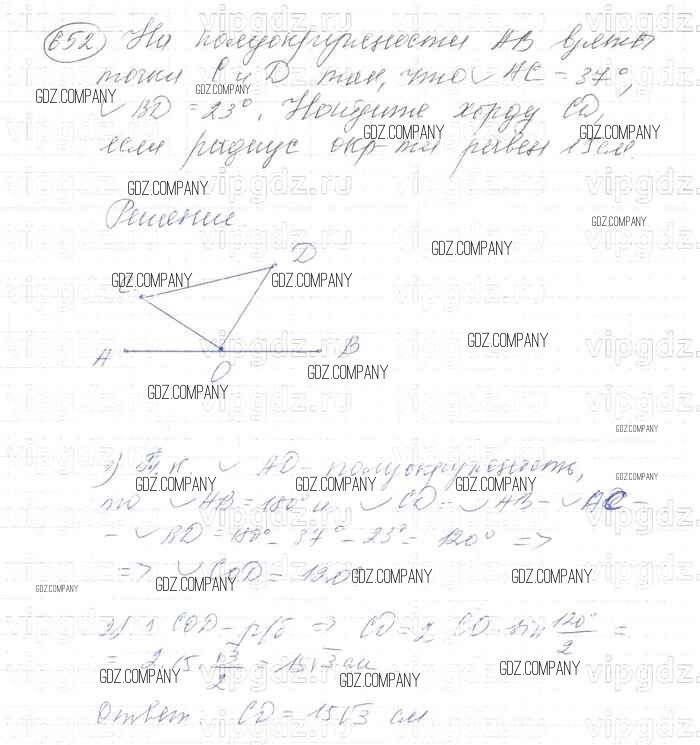 652) На полуокружности AB взяты
точки C и D так, что ◡ AC = 37°,
◡ BD = 23°. Найдите хорду CD,
если радиус окр-ти равен 15 см.
Решение
D
C
A
B
O
1) Т.к ◡ AD - полуокружность,
то ◡ AB = 180° и ◡ CD = ◡ AB - ◡ AC -
- ◡ BD = 180° - 37° - 23° = 120° =>
=> COD = 120°
2) COD - р/б => CD = 2 CO · sin 120°/2 =
= 2 · 15 · √3/2 = 15√3 см
Ответ: CD = 15√3 см
GDZ.COMPANY
vipgdz.ru